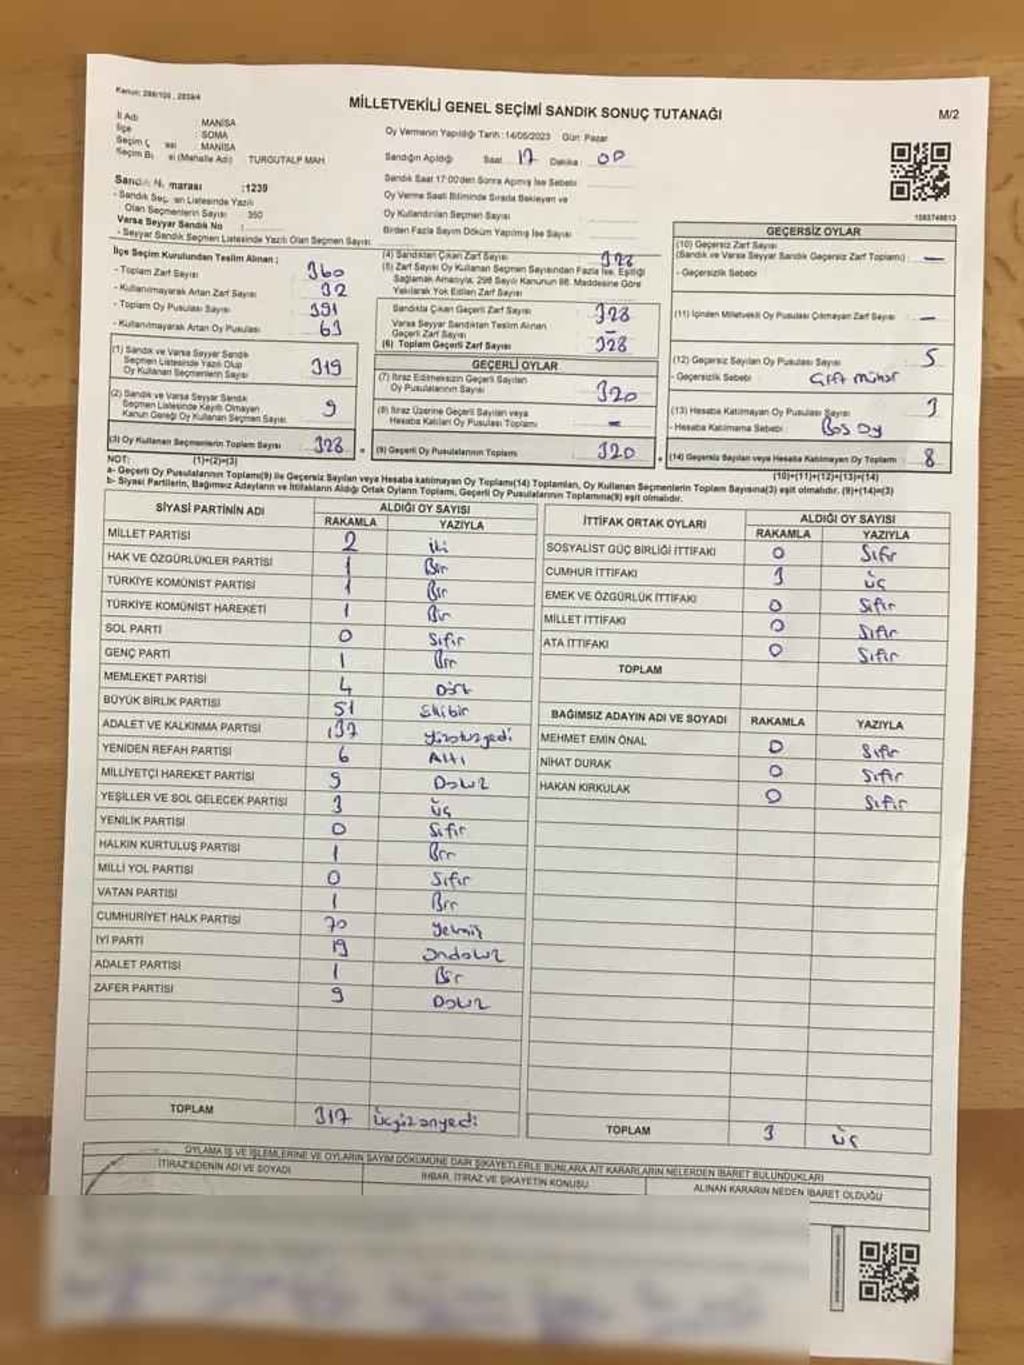 Kanun: 298/105 , 2839/4
MİLLETVEKİLİ GENEL SEÇİMİ SANDIK SONUÇ TUTANAĞI
M/2
İl Adı MANİSA
İlçe : SOMA
Seçim Ç MANİSA
Seçim B (Mahalle Adı) TURGUTALP MAH
Oy Vermenin Yapıldığı Tarih : 14/05/2023 Gün: Pazar
Sandığın Açıldığı Saat 17 Dakika : 00
Sandık Saat 17:00'den Sonra Açılmış İse Sebebi
Oy Verme Saati Bitiminde Sırada Bekleyen ve
Oy Kullandırılan Seçmen Sayısı
Birden Fazla Sayım Döküm Yapılmış İse Sayısı
Sandık Numarası :1239
- Sandık Seçmen Listesinde Yazılı
Olan Seçmenlerin Sayısı 350
Varsa Seyyar Sandık No :
- Seyyar Sandık Seçmen Listesinde Yazılı Olan Seçmen Sayısı:
İlçe Seçim Kurulundan Teslim Alınan ;
- Toplam Zarf Sayısı 360
- Kullanılmayarak Artan Zarf Sayısı 32
- Toplam Oy Pusulası Sayısı 391
- Kullanılmayarak Artan Oy Pusulası 63
(1) Sandık ve Varsa Seyyar Sandık
Seçmen Listesinde Yazılı Olup
Oy Kullanan Seçmenlerin Sayısı 319
(2) Sandık ve Varsa Seyyar Sandık
Seçmen Listesinde Kayıtlı Olmayan
Kanun Gereği Oy Kullanan Seçmen Sayısı 9
(3) Oy Kullanan Seçmenlerin Toplam Sayısı 328
(4) Sandıktan Çıkan Zarf Sayısı 328
(5) Zarf Sayısı Oy Kullanan Seçmen Sayısından Fazla İse, Eşitliği
Sağlamak Amacıyla, 298 Sayılı Kanunun 98. Maddesine Göre
Yakılarak Yok Edilen Zarf Sayısı
Sandıkta Çıkan Geçerli Zarf Sayısı 328
Varsa Seyyar Sandıktan Teslim Alınan
Geçerli Zarf Sayısı -
(6) Toplam Geçerli Zarf Sayısı 328
GEÇERLİ OYLAR
(7) İtiraz Edilmeksizin Geçerli Sayılan
Oy Pusulalarının Sayısı 320
(8) İtiraz Üzerine Geçerli Sayılan veya
Hesaba Katılan Oy Pusulası Toplamı -
(9) Geçerli Oy Pusulalarının Toplamı 320
GEÇERSİZ OYLAR
(10) Geçersiz Zarf Sayısı
(Sandık ve Varsa Seyyar Sandık Geçersiz Zarf Toplamı) -
- Geçersizlik Sebebi
(11) İçinden Milletvekili Oy Pusulası Çıkmayan Zarf Sayısı -
(12) Geçersiz Sayılan Oy Pusulası Sayısı 5
- Geçersizlik Sebebi Çift Mühür
(13) Hesaba Katılmayan Oy Pusulası Sayısı 3
- Hesaba Katılmama Sebebi Boş Oy
(14) Geçersiz Sayılan veya Hesaba Katılmayan Oy Toplamı 8
NOT: (1)+(2)=(3) (10)+(11)+(12)+(13)=(14)
a- Geçerli Oy Pusulalarının Toplamı(9) ile Geçersiz Sayılan veya Hesaba katılmayan Oy Toplamı(14) Toplamları, Oy Kullanan Seçmenlerin Toplam Sayısına(3) eşit olmalıdır. (9)+(14)=(3)
b- Siyasi Partilerin, Bağımsız Adayların ve İttifakların Aldığı Ortak Oyların Toplamı, Geçerli Oy Pusulalarının Toplamına(9) eşit olmalıdır.
SİYASİ PARTİNİN ADI ALDIĞI OY SAYISI
RAKAMLA YAZIYLA
MİLLET PARTİSİ 2 iki
HAK VE ÖZGÜRLÜKLER PARTİSİ 1 Bir
TÜRKİYE KOMÜNİST PARTİSİ 1 Bir
TÜRKİYE KOMÜNİST HAREKETİ 1 Bir
SOL PARTİ 0 Sıfır
GENÇ PARTİ 1 Bir
MEMLEKET PARTİSİ 4 Dört
BÜYÜK BİRLİK PARTİSİ 51 Ellibir
ADALET VE KALKINMA PARTİSİ 137 yüzotuzyedi
YENİDEN REFAH PARTİSİ 6 Altı
MİLLİYETÇİ HAREKET PARTİSİ 9 Dokuz
YEŞİLLER VE SOL GELECEK PARTİSİ 3 üç
YENİLİK PARTİSİ 0 Sıfır
HALKIN KURTULUŞ PARTİSİ 1 Bir
MİLLİ YOL PARTİSİ 0 Sıfır
VATAN PARTİSİ 1 Bir
CUMHURİYET HALK PARTİSİ 70 yetmiş
İYİ PARTİ 19 ondokuz
ADALET PARTİSİ 1 Bir
ZAFER PARTİSİ 9 Dokuz
TOPLAM 317 üçyüzonyedi
İTTİFAK ORTAK OYLARI ALDIĞI OY SAYISI
RAKAMLA YAZIYLA
SOSYALİST GÜÇ BİRLİĞİ İTTİFAKI 0 Sıfır
CUMHUR İTTİFAKI 3 üç
EMEK VE ÖZGÜRLÜK İTTİFAKI 0 Sıfır
MİLLET İTTİFAKI 0 Sıfır
ATA İTTİFAKI 0 Sıfır
TOPLAM
BAĞIMSIZ ADAYIN ADI VE SOYADI RAKAMLA YAZIYLA
MEHMET EMİN ÖNAL 0 Sıfır
NİHAT DURAK 0 Sıfır
HAKAN KIRKULAK 0 Sıfır
TOPLAM 3 üç
OYLAMA İŞ VE İŞLEMLERİNE VE OYLARIN SAYIM DÖKÜMÜNE DAİR ŞİKAYETLERLE BUNLARA AİT KARARLARIN NELERDEN İBARET BULUNDUKLARI
İTİRAZ EDENİN ADI VE SOYADI İHBAR, İTİRAZ VE ŞİKAYETİN KONUSU ALINAN KARARIN NEDEN İBARET OLDUĞU